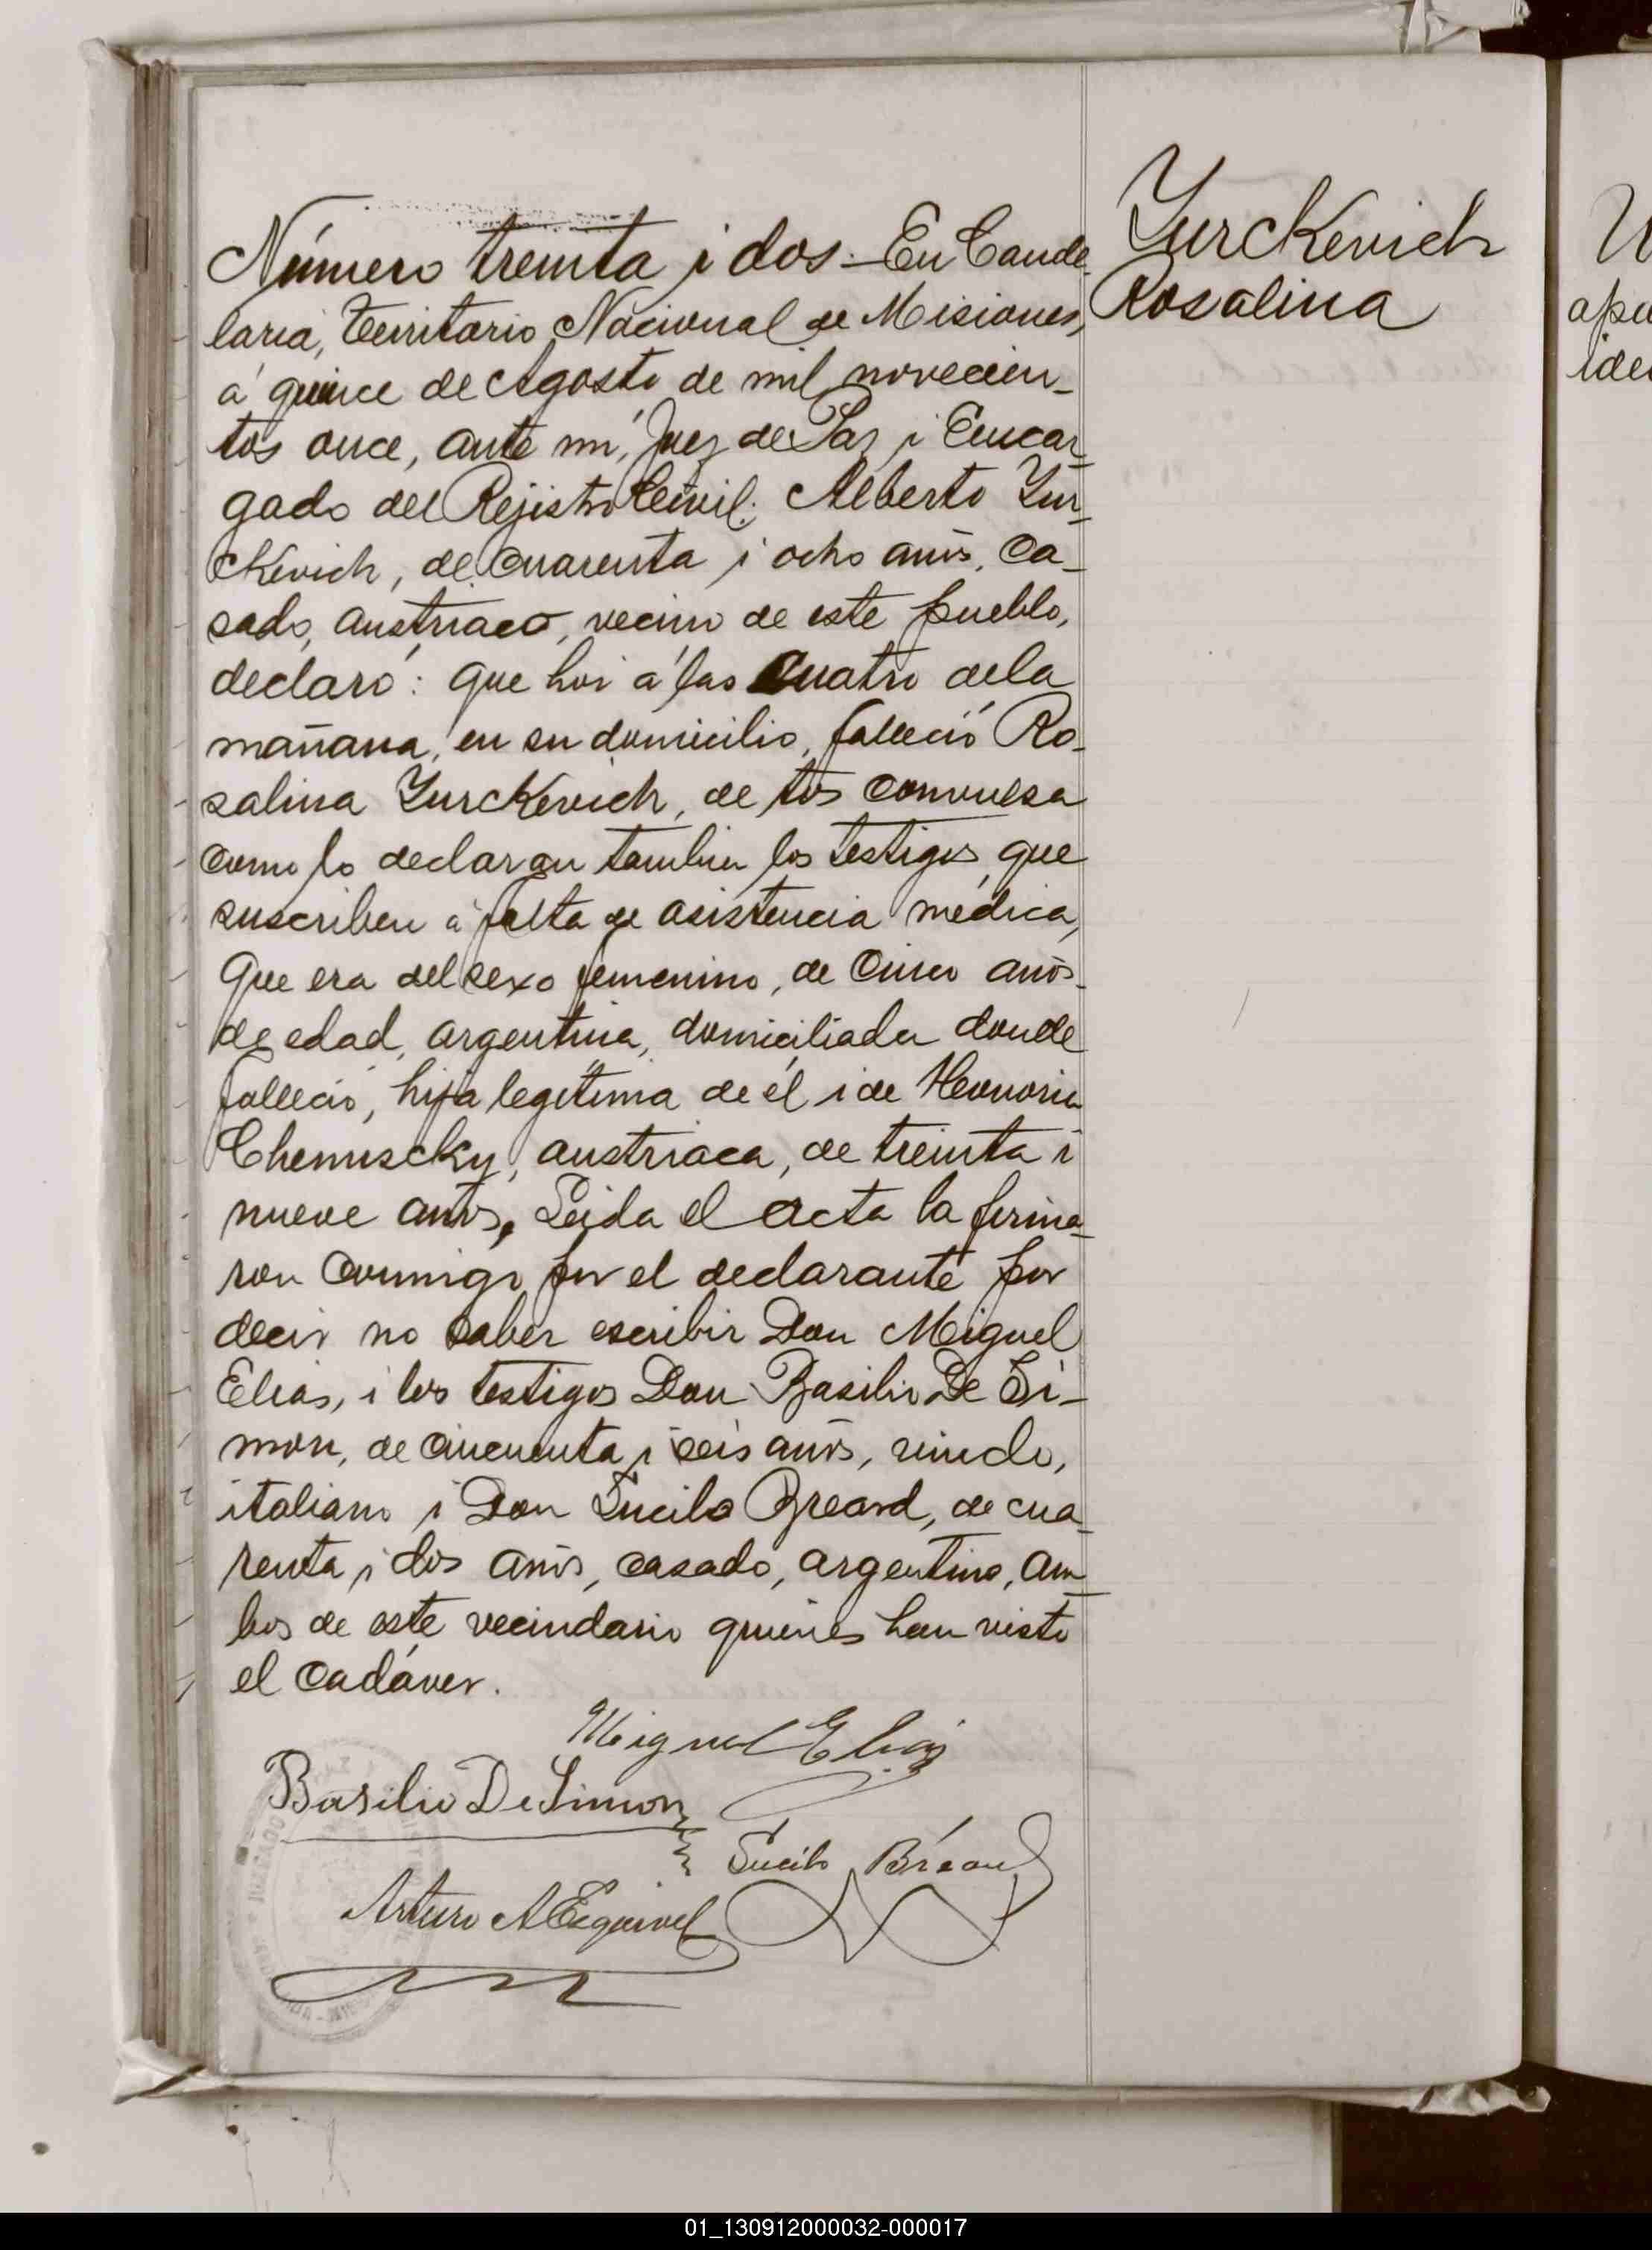 Número treinta i dos. - En Cande-
laria, Territorio Nacional de Misiones,
á quince de Agosto de mil novecien-
tos once, ante mi, Juez de Paz i Encar-
gado del Rejistro Civil; Alberto Yur-
ckevich, de cuarenta i ocho años, ca-
sado, austriaco, vecino de este pueblo,
declaró: que hoi á las cuatro de la
mañana, en su domicilio, falleció Ro-
salina Yurckevich, de tos convulsa
como lo declaran tambien los testigos que
suscriben á falta de asistencia médica,
que era del sexo femenino, de cinco años
de edad, argentina, domiciliada donde
falleció, hija legítima de él i de Honoria
Chemuscky, austriaca, de treinta i
nueve años. Leida el acta la firma-
ron conmigo por el declarante por
decir no saber escribir Don Miguel
Elias, i los testigos Don Basilio De Si-
mon, de cincuenta i seis años, viudo,
italiano i Don Lucilo Breard, de cua-
renta i dos años, casado, argentino, am-
bos de este vecindario quienes han visto
el cadáver.
Miguel Elias
Basilio De Simon
Lucilo Bréard
Arturo A Esquivel
Yurckevich
Rosalina
01_130912000032-000017